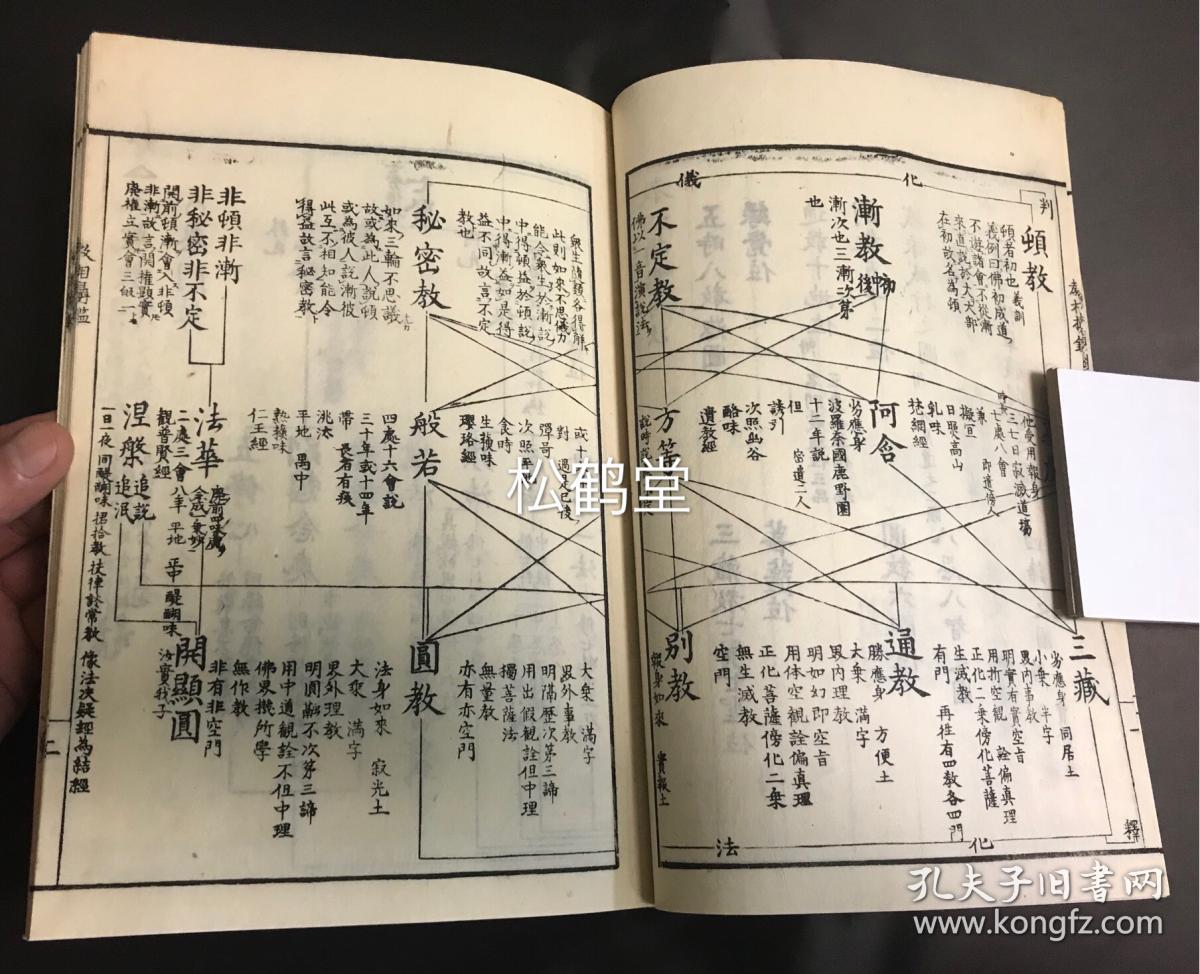 判
化
儀
頓教
頓者初也 義訓
義例曰佛初成道
不遊諸會不從漸
來直說於大大部
在初故名為頓
漸教
初
中
後
漸次也三漸次第
也
不定教
佛以一音演說法
眾生隨類各得解
此則如來不思儀力
能令眾生於漸說
中得頓益於頓說
中得漸益如是得
益不同故言不定
教也
秘密教
如來三輪不思議
故或為此人說頓
或為彼人說漸彼
此互不相知能令
得益故言秘密教
非頓非漸
非秘密非不定
開前頓漸會入非頓
非漸故言開權顯實
廢權立實會三歸一
教相
他受用報身
三七日寂滅道場
七處八會
兼
即遣傍人
擬宜
日照高山
乳味
梵網經
阿含
劣應身
波羅奈國鹿野園
十二年說
但
當遣二人
誘引
次照幽谷
酪味
遺教經
方等
說時
對
彈呵
次照平
食時
生穌味
瓔珞經
般若
四處十六會說
三十年或十四年
帶 長者有疾
洮汰
平地 禺中
熟穌味
仁王經
法華
二處三會
八年 平地 正中 醍醐味
觀普賢經
涅槃
追說
追泯
一日一夜 同醍醐味 捃拾教 扶律談常教 像法決疑經為結經
三藏
劣應身 同居土
小乗 半字
界內事教
明實有實空旨
用折空觀 詮偏真理
正化二乗傍化菩薩
生滅教
有門 再往有四教各四門
通教
勝應身 方便土
大乗 滿字
界內理教
明如幻即空旨
用体空觀詮偏真理
正化菩薩傍化二乗
無生滅教
空門
別教
報身如來 實報土
大乗 滿字
界外事教
明隔歷次第三諦
用出假觀詮但中理
獨菩薩法
無量教
亦有亦空門
圓教
法身如來 寂光土
大乗 滿字
界外理教
明圓融不次第三諦
用中道觀詮不但中理
佛界機所學
無作教
非有非空門
開顯圓
汝實我子
釋
化
法
二
松鹤堂
孔夫子旧书网
www.kongfz.com